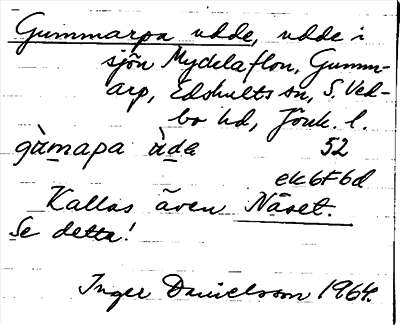 Gummarpa udde, udde i
sjön Mycklaflon, Gumm-
arp, Edshults sn, S. Ved-
bo hd, Jönk. l.
gàmapa àde 52
ek 6F6d
Kallas även Näset.
Se detta!
Inger Danielsson 1964.